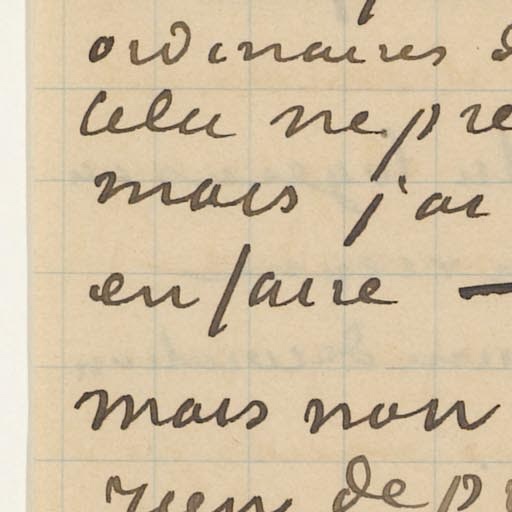 ordinaires
cela ne pre
mais j'ai
en faire —
mais non
rien de p